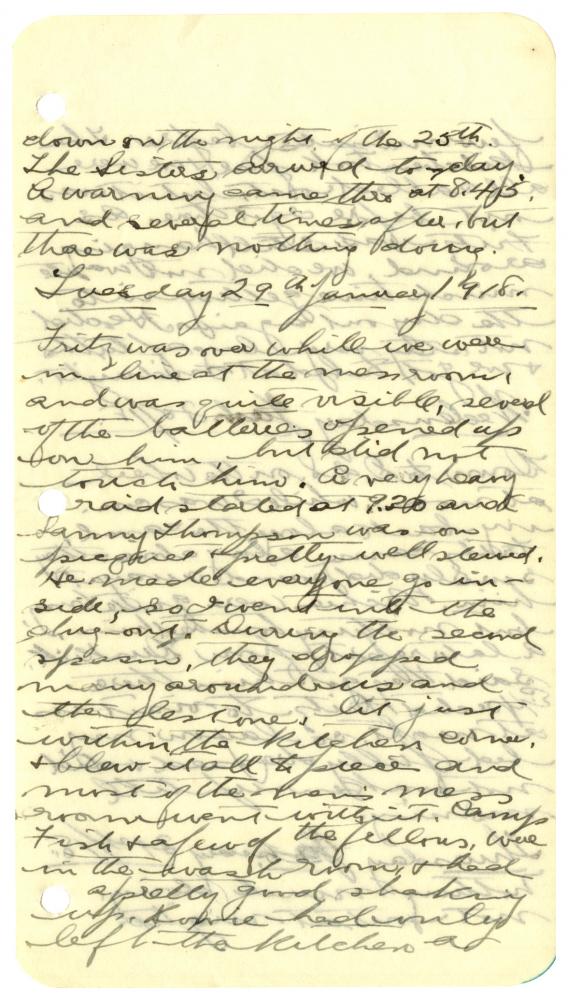 down on the night of the 25th.
The Sisters arrived to-day
A warning came thro at 8.45,
and several times after, but
there was nothing doing.
Tuesday 29th January 1918.
Fritz was over while we were
in line at the mess room,
and was quite visible, several
of the batteries opened up
on him, but did not
touch him. A very heavy
raid started at 9.20 and
Sammy Thompson was on
picquet & pretty well stewed.
He made everyone go in-
side, so I went into the
dug-out. During the second
spasm, they dropped
many around us and
the last one, lit just
within the kitchen corner,
& blew it all to piece and
most of the men's mess
room went with it. Camps
Fish & a few of the fellows, were
in the wash room, & had
a pretty good shaking
up. had only
left the kitchen as